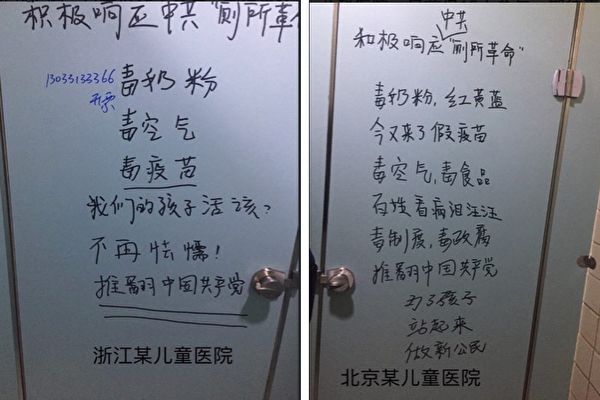 积极响应中共"厕所革命
13033133366
开票
毒奶粉
毒空气
毒疫苗
我们的孩子活该？
不再怯懦！
推翻中国共产党
浙江某儿童医院
中共
积极响应"厕所革命"
毒奶粉，红黄蓝
今又来了假疫苗
毒空气，毒食品
百姓看病泪汪汪
毒制度，毒政腐
推翻中国共产党
为了孩子
站起来
做新公民
北京某儿童医院